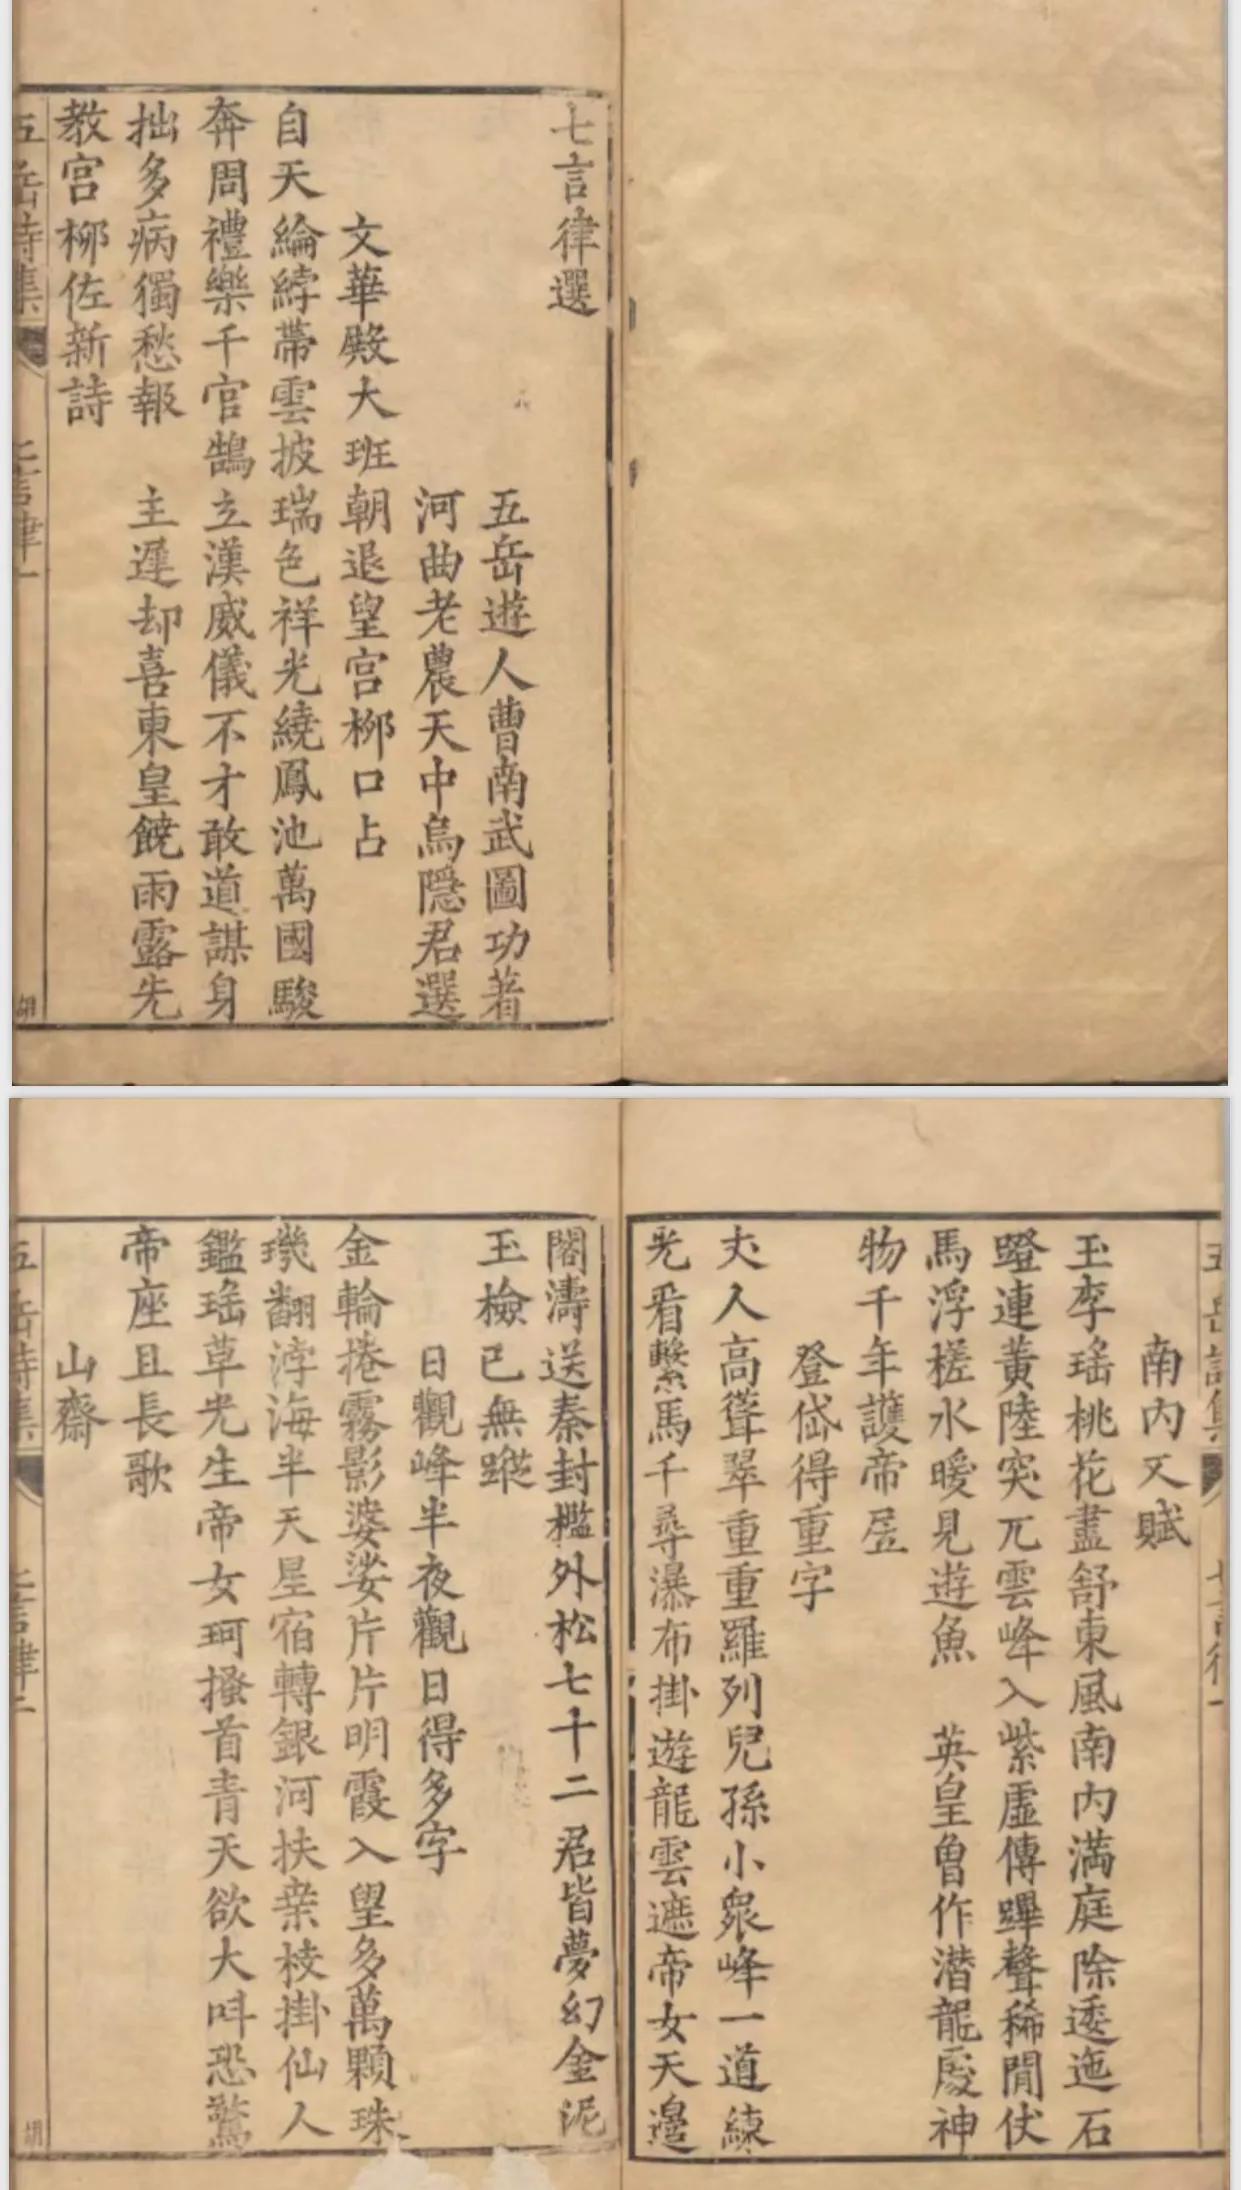 七言律選
五岳遊人曹南武圖功著
河曲老農天中烏隱君選
文華殿大班朝退望宮柳口占
自天綸綍帶雲披瑞色祥光繞鳳池萬國駿
奔周禮樂千官鵠立漢威儀不才敢道謀身
拙多病獨愁報 主遲却喜東皇饒雨露先
教宮柳佐新詩
五岳詩集 七言律 一 胡
五岳詩集 七言律 一
南內又賦
玉李瑤桃花盡舒東風南內滿庭除逶迤石
蹬連黃陸突兀雲峰入紫虛傳蹕聲稀閒伏
馬浮槎水暖見遊魚 英皇曾作潛龍處神
物千年護帝居
登岱得重字
丈人高聳翠重重羅列兒孫小衆峰一道練
光看繫馬千尋瀑布掛遊龍雲遮帝女天邊
閣濤送秦封檻外松七十二君皆夢幻金泥
玉檢已無蹤
日觀峰半夜觀日得多字
金輪捲霧影婆娑片片明霞入望多萬顆珠
璣翻浡海半天星宿轉銀河扶桒枝掛仙人
鑑瑤草光生帝女珂搔首青天欲大呌恐驚
帝座且長歌
山齋
五岳詩集 七言律 二 胡